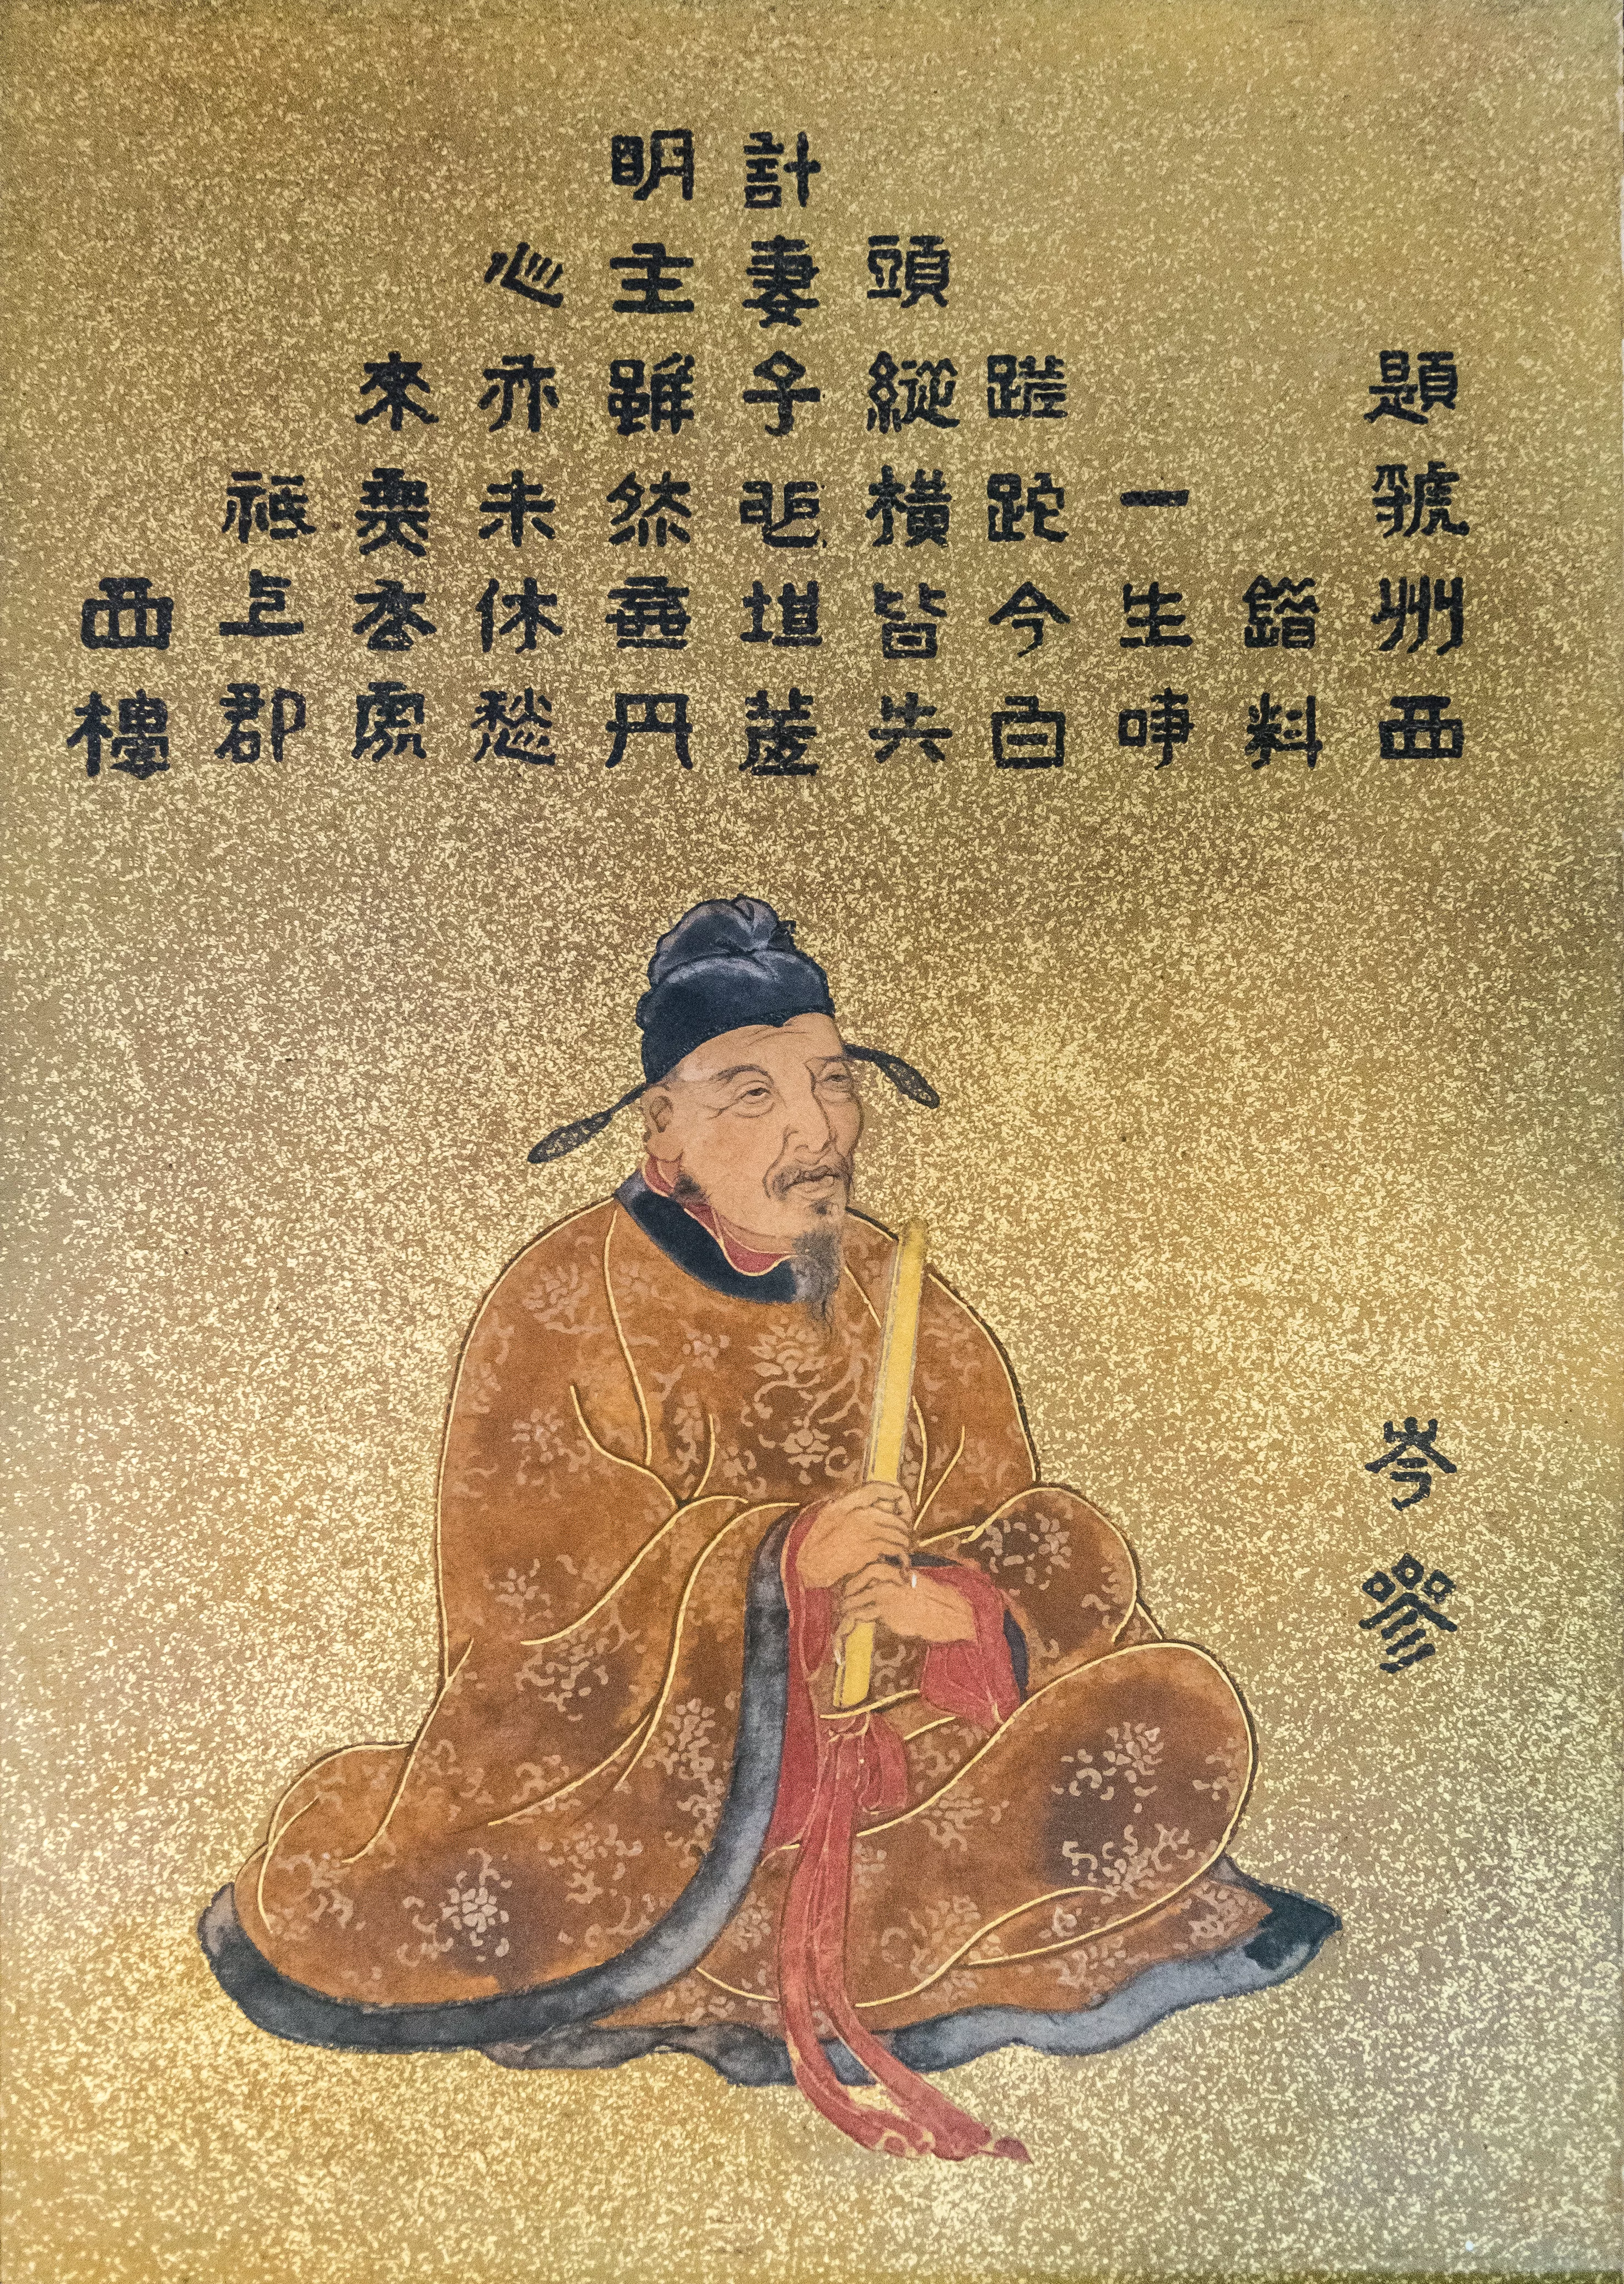 題虢州西
錯料
一生事
蹉跎今白
頭縱橫皆失
計妻子也堪羞
明主雖然棄丹
心亦未休愁
來無去處
祇上郡
西樓
岑參